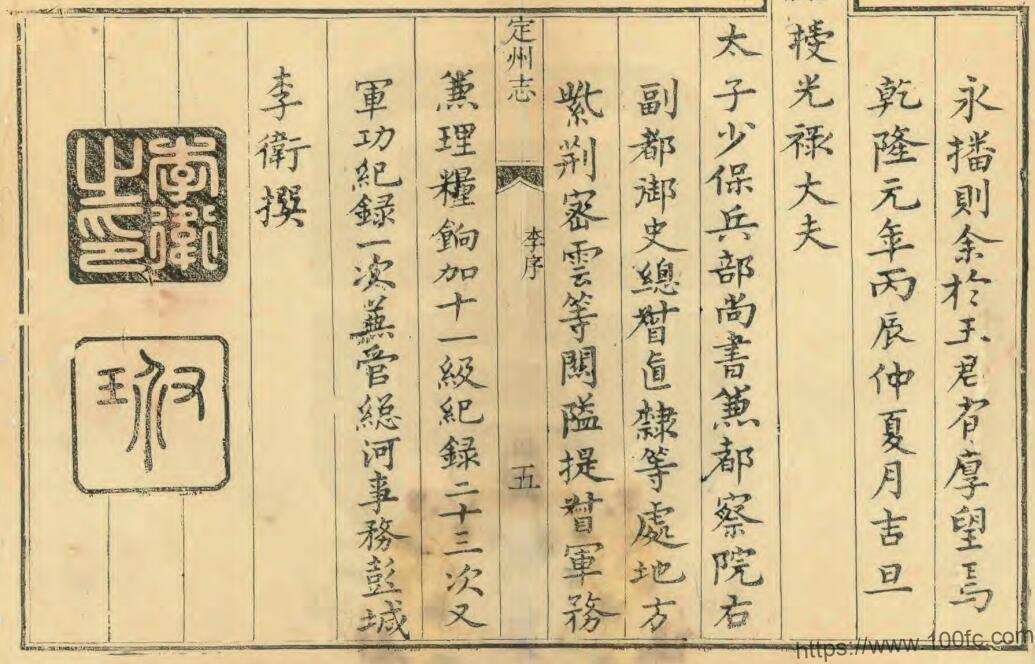 永播則余於王君有厚望焉
乾隆元年丙辰仲夏月吉旦
授光祿大夫
太子少保兵部尚書兼都察院右
副都御史總督直隸等處地方
紫荆密雲等關隘提督軍務
定州志
李序
五
兼理糧餉加十一級紀録二十三次又
軍功紀録一次兼管總河事務彭城
李衛撰
李衛之印
https://www.100fc.com